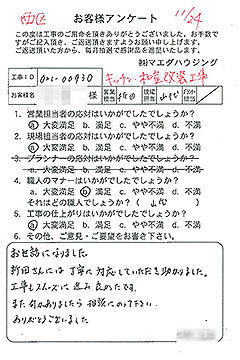 西区
お客様アンケート
11/24
この度は工事のご用命を頂きありがとうございました。お手数で
すがご記入頂き、ご返送頂きますようお願い申し上げます。
ご返送頂いた方から、毎月抽選で感謝品を進呈いたします。
㈱マエダハウジング
工事ID 041-00930 キッチン・和室改装工事
お客様名 様 営業担当 工事担当
1. 営業担当者の応対はいかがでしたでしょうか?
a. 大変満足 b. 満足 c. やや不満 d. 不満
2. 工事担当者の応対はいかがでしたでしょうか?
a. 大変満足 b. 満足 c. やや不満 d. 不満
3. プランナーの応対はいかがでしたでしょうか?
a. 大変満足 b. 満足 c. やや不満 d. 不満
4. 職人のマナーはいかがでしたでしょうか?
a. 大変満足 b. 満足 c. やや不満 d. 不満
それはどの職人でしょうか? ( )
5. 工事の仕上がりはいかがでしたでしょうか?
a. 大変満足 b. 満足 c. やや不満 d. 不満
6. その他、ご意見・ご要望をお書き下さい。
お世話になりました。
さんには丁寧に対応していただき助かりました。
工事もスムーズに進み良かったです。
また何かありましたら相談にのって下さい。
ありがとうございました。